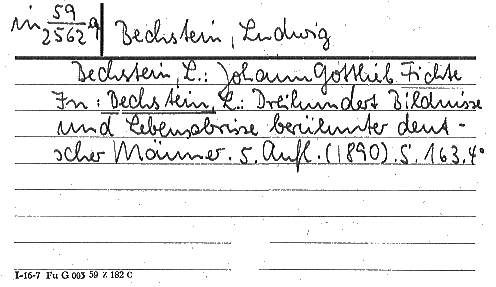 in 59/2562 q Bechstein, Ludwig
Bechstein, L.: Johann Gottlieb Fichte
In: Bechstein, L.: Dreihundert Bildnisse
und Lebensabrisse berühmter deut-
scher Männer. 5. Aufl. (1890). S. 163. 4°
I-16-7 Fu G 003 59 Z 182 C